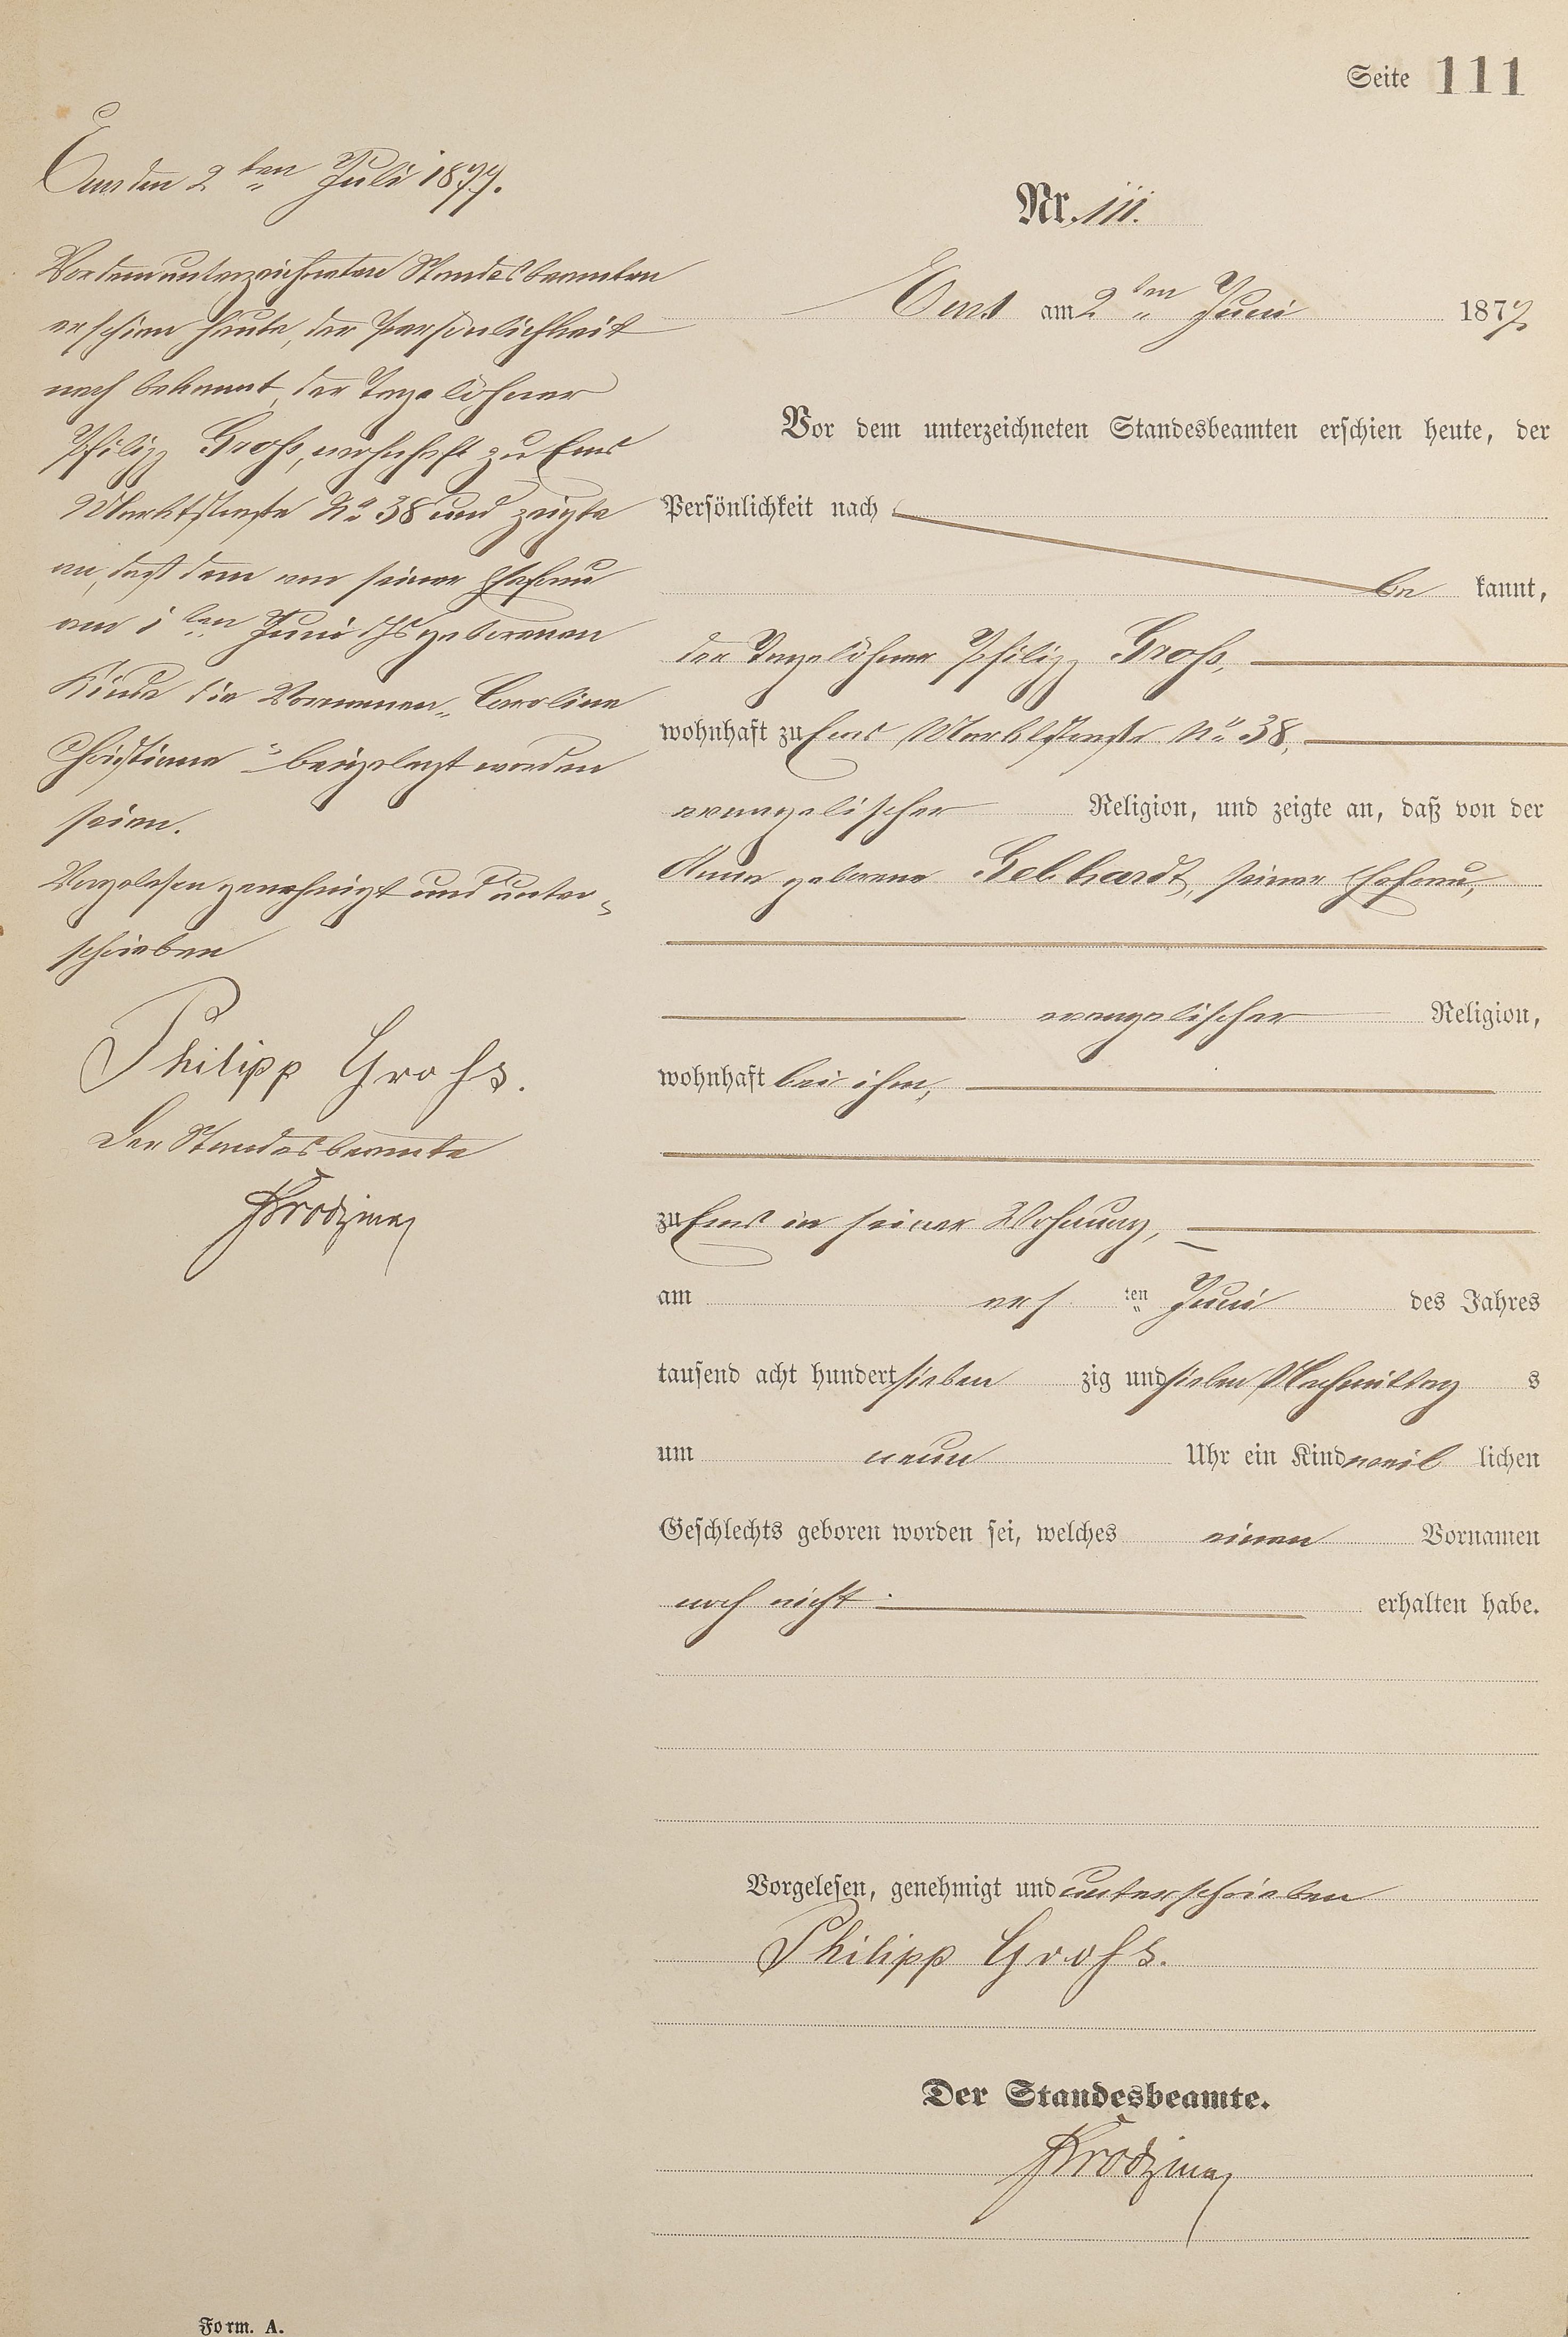 Seite 111
Ems den 2ten Juli 1877.
Vor dem unterzeichneten Standesbeamten
erschien heute, der Persönlichkeit
nach bekannt, der Tagelöhner
Philipp Groß, wohnhaft zu Ems
Marktstraße No 38 und zeigte
an, daß dem von seiner Ehefrau
am 1ten Juni ds Js geborenen
Kinde die Vornamen „Caroline
Christiane“ beigelegt worden
seien.
Vorgelesen genehmigt und unter-
schrieben
Philipp Grohs.
Der Standesbeamte
Nr. 111.
Ems am 2ten Juni 1877
Vor dem unterzeichneten Standesbeamten erschien heute, der
Persönlichkeit nach
be kannt,
der Tagelöhner Philipp Groß,
wohnhaft zu Ems Marktstraße No 38,
evangelischer Religion, und zeigte an, daß von der
Anna geborene Gebhardt, seiner Ehefrau,
evangelischer Religion,
wohnhaft bei ihm,
zu Ems in seiner Wohnung,
am ers ten Juni des Jahres
tausend acht hundert sieben zig und sieben Nachmittag s
um neun Uhr ein Kind weib lichen
Geschlechts geboren worden sei, welches einen Vornamen
noch nicht erhalten habe.
Vorgelesen, genehmigt und unterschrieben
Philipp Grohs.
Der Standesbeamte.
Form. A.